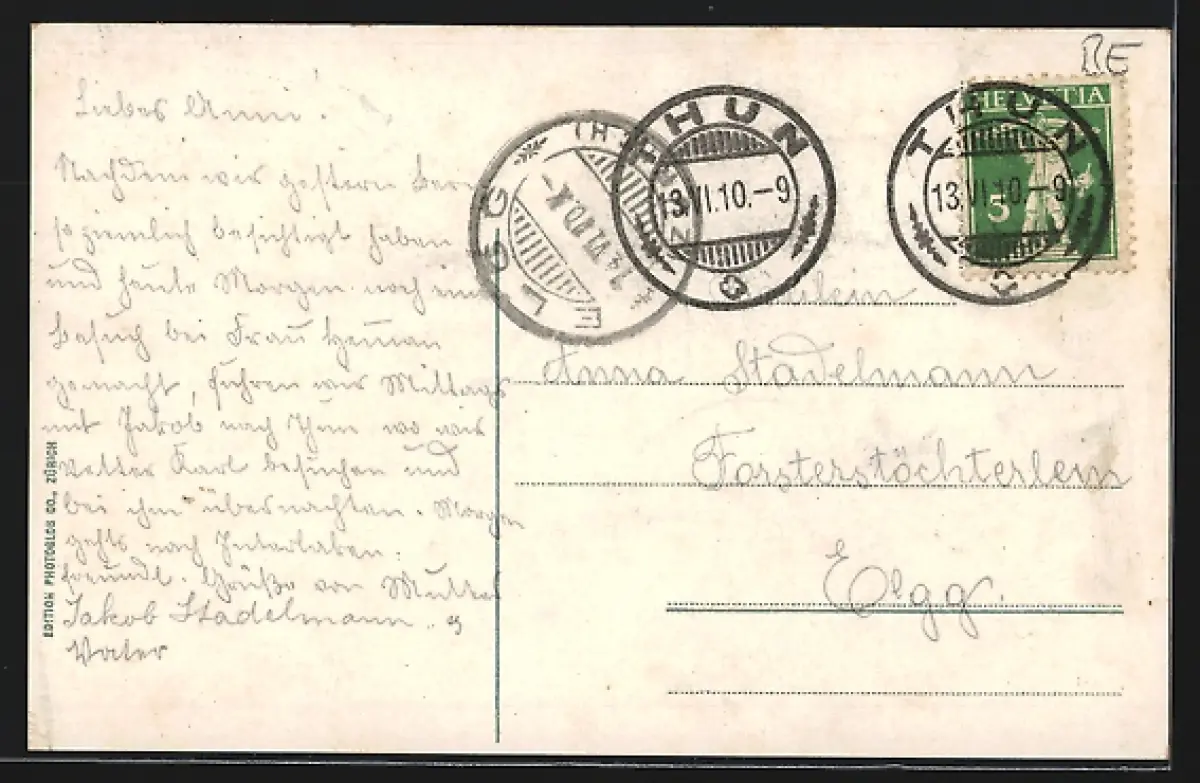 BE
HELVETIA
5
THUN
13.VI.10.-9
THUN
13.VI.10.-9
ELGG
Liebes Anni!
Nachdem wir gestern Bern
so ziemlich besichtigt haben
und heute Morgen noch ein
Besuch bei Frau
gemacht, fuhren wir Mittags
mit Jakob nach Thun wo wir
Vetter Karl besuchen und
bei ihm übernachten. Morgen
gehts nach Interlaken.
Freundl. Grüße von Mutter
Jakob Stadelmann
Vater
Fräulein
Anna Stadelmann
Försterstöchterlein
Elgg.
EDITION PHOTOGLOB CO., ZÜRICH